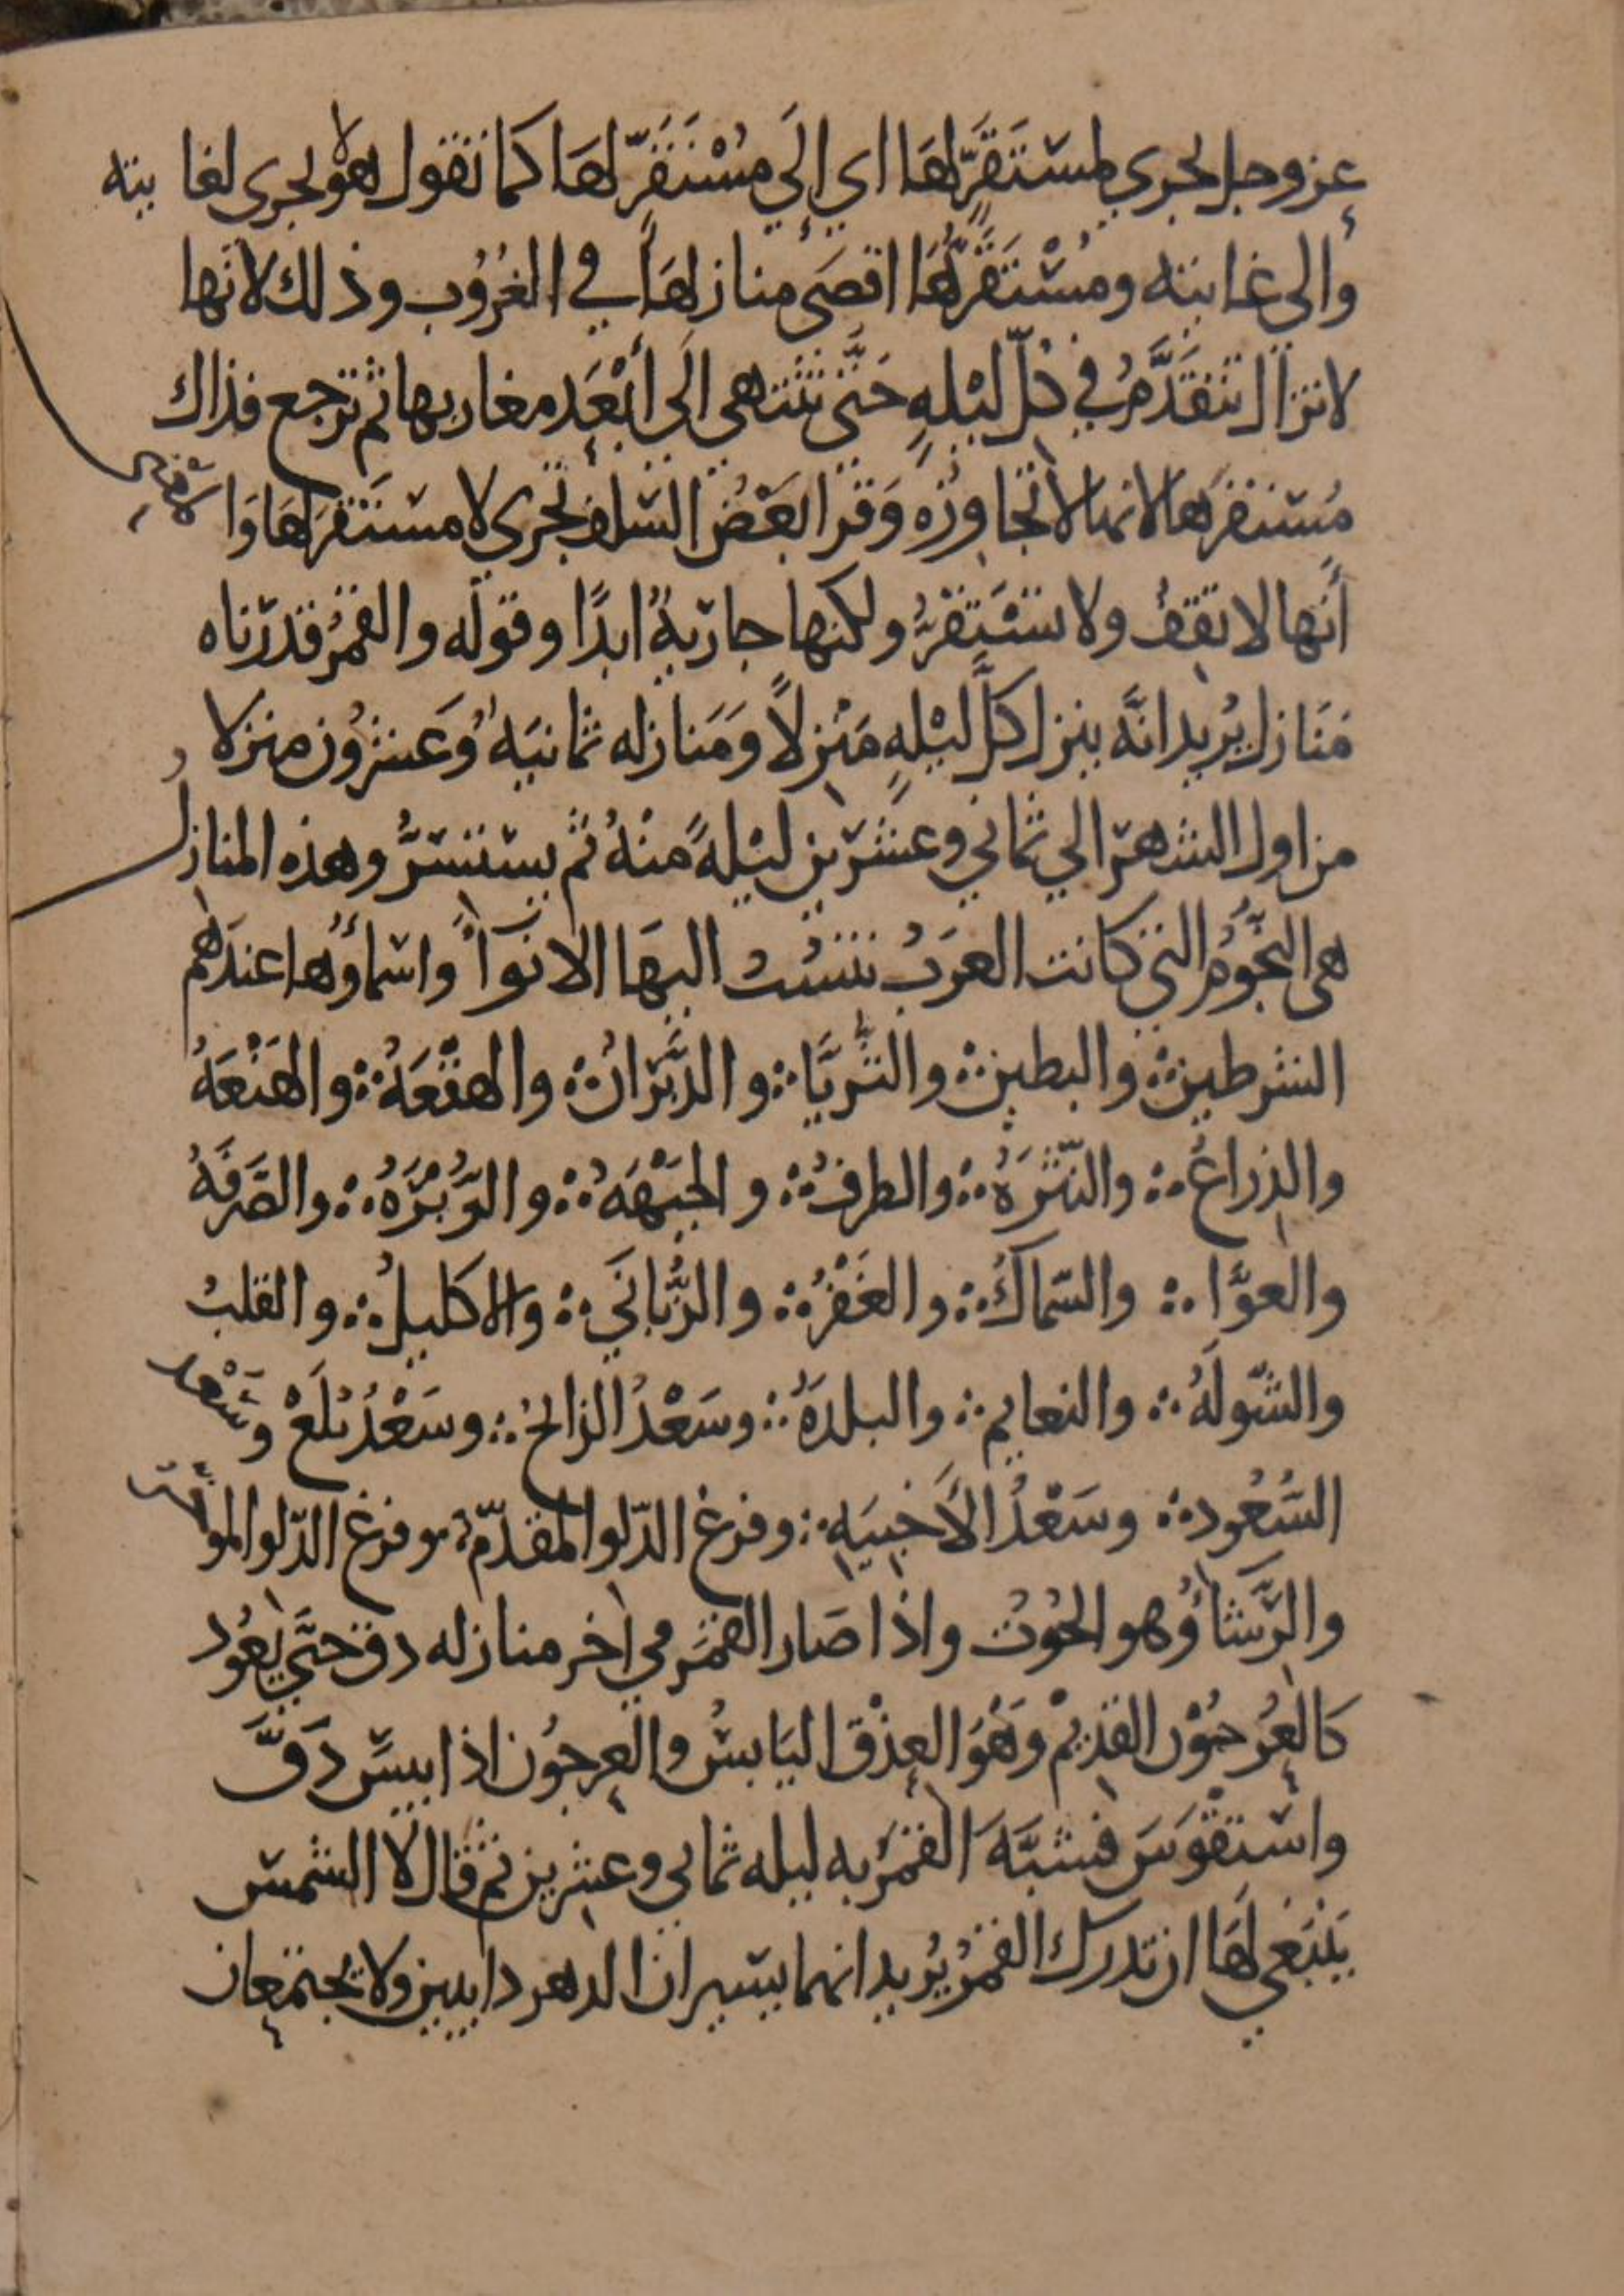 عز وجل لجري لمستقرّ لهَا اي إلَي مُسْتَقَرّ لهَا كما نقول هو لجرى لغايته
والى غايته ومُسْتَقَرُّهَا اقصَى منازلهَا في الغُرُوب وذلك لانها
لا تزال تتقَدَّمُ في كلّ ليْلهٍ حَتَّى تنتهي الَي أبْعَد مغاربها ثم ترجع فذاك
مُستقرها لانها لا تجاوزه وَقرا بَعَضُ السلف تجري لا مستقر لهَا وَالمعنى
أنها لا تقفُ ولا تستَقرُّ ولكنها جاريةٌ ابدًا وقوله والقمرُ قدرناه
مَنَازل يُريد انَّه ينزل كلّ ليْلهٍ مَنْزلاً وَمَنازله ثمانيَهٌ وَعَشرُون منزلا
من اول الشهر الي ثماني وعشرين ليْلهً منهُ ثم يستسرُّ وهذه المنازل
هي النجُومُ التي كانت العرَبُ تنسُبُ اليهَا الانوآً واسماؤها عندهم
الشرطين؞ والبطين؞ والثريَّا؞ والدَّبَرَانُ؞ والهقْعَهُ؞ والهَنْعَهُ
والذراعُ؞ والنّثرَهُ؞ والطرفُ؞ والجَبْهَهُ؞ والزُّبْرَهُ؞ والصَّرفهُ
والعوَّا؞ والسّماكُ؞ والغَفْرُ؞ والزُّبانَي؞ والاكليلُ؞ والقلبُ
والشّولَهُ؞ والنعايم؞ والبلدَهُ؞ وسَعْدُ الذابحُ؞ وسَعْدُ بُلَعْ وسَعْد
السُّعُود؞ وسَعْدُ الأَخبيَهِ؞ وفرغ الدّلو المقدّم؞ وفرغ الدّلو الموخر
والرَّشاؤُ وهو الحُوتُ واذا صَار القمَر في اخر منازله دق حتَّي يعُود
كَالعُرجُوْن القديْم وَهْوَ العِذْق اليَابسُ والعرجُون اذا يبسَ دَقَّ
واستقْوسَ فشبَّهَ القمَر به ليله ثماني وعشرين ثم قال لا الشمس
يَنْبَغي لهَا ان تدرك القمرُ يُريد انهما يسيران الدهر دايبين ولا يجتمعان